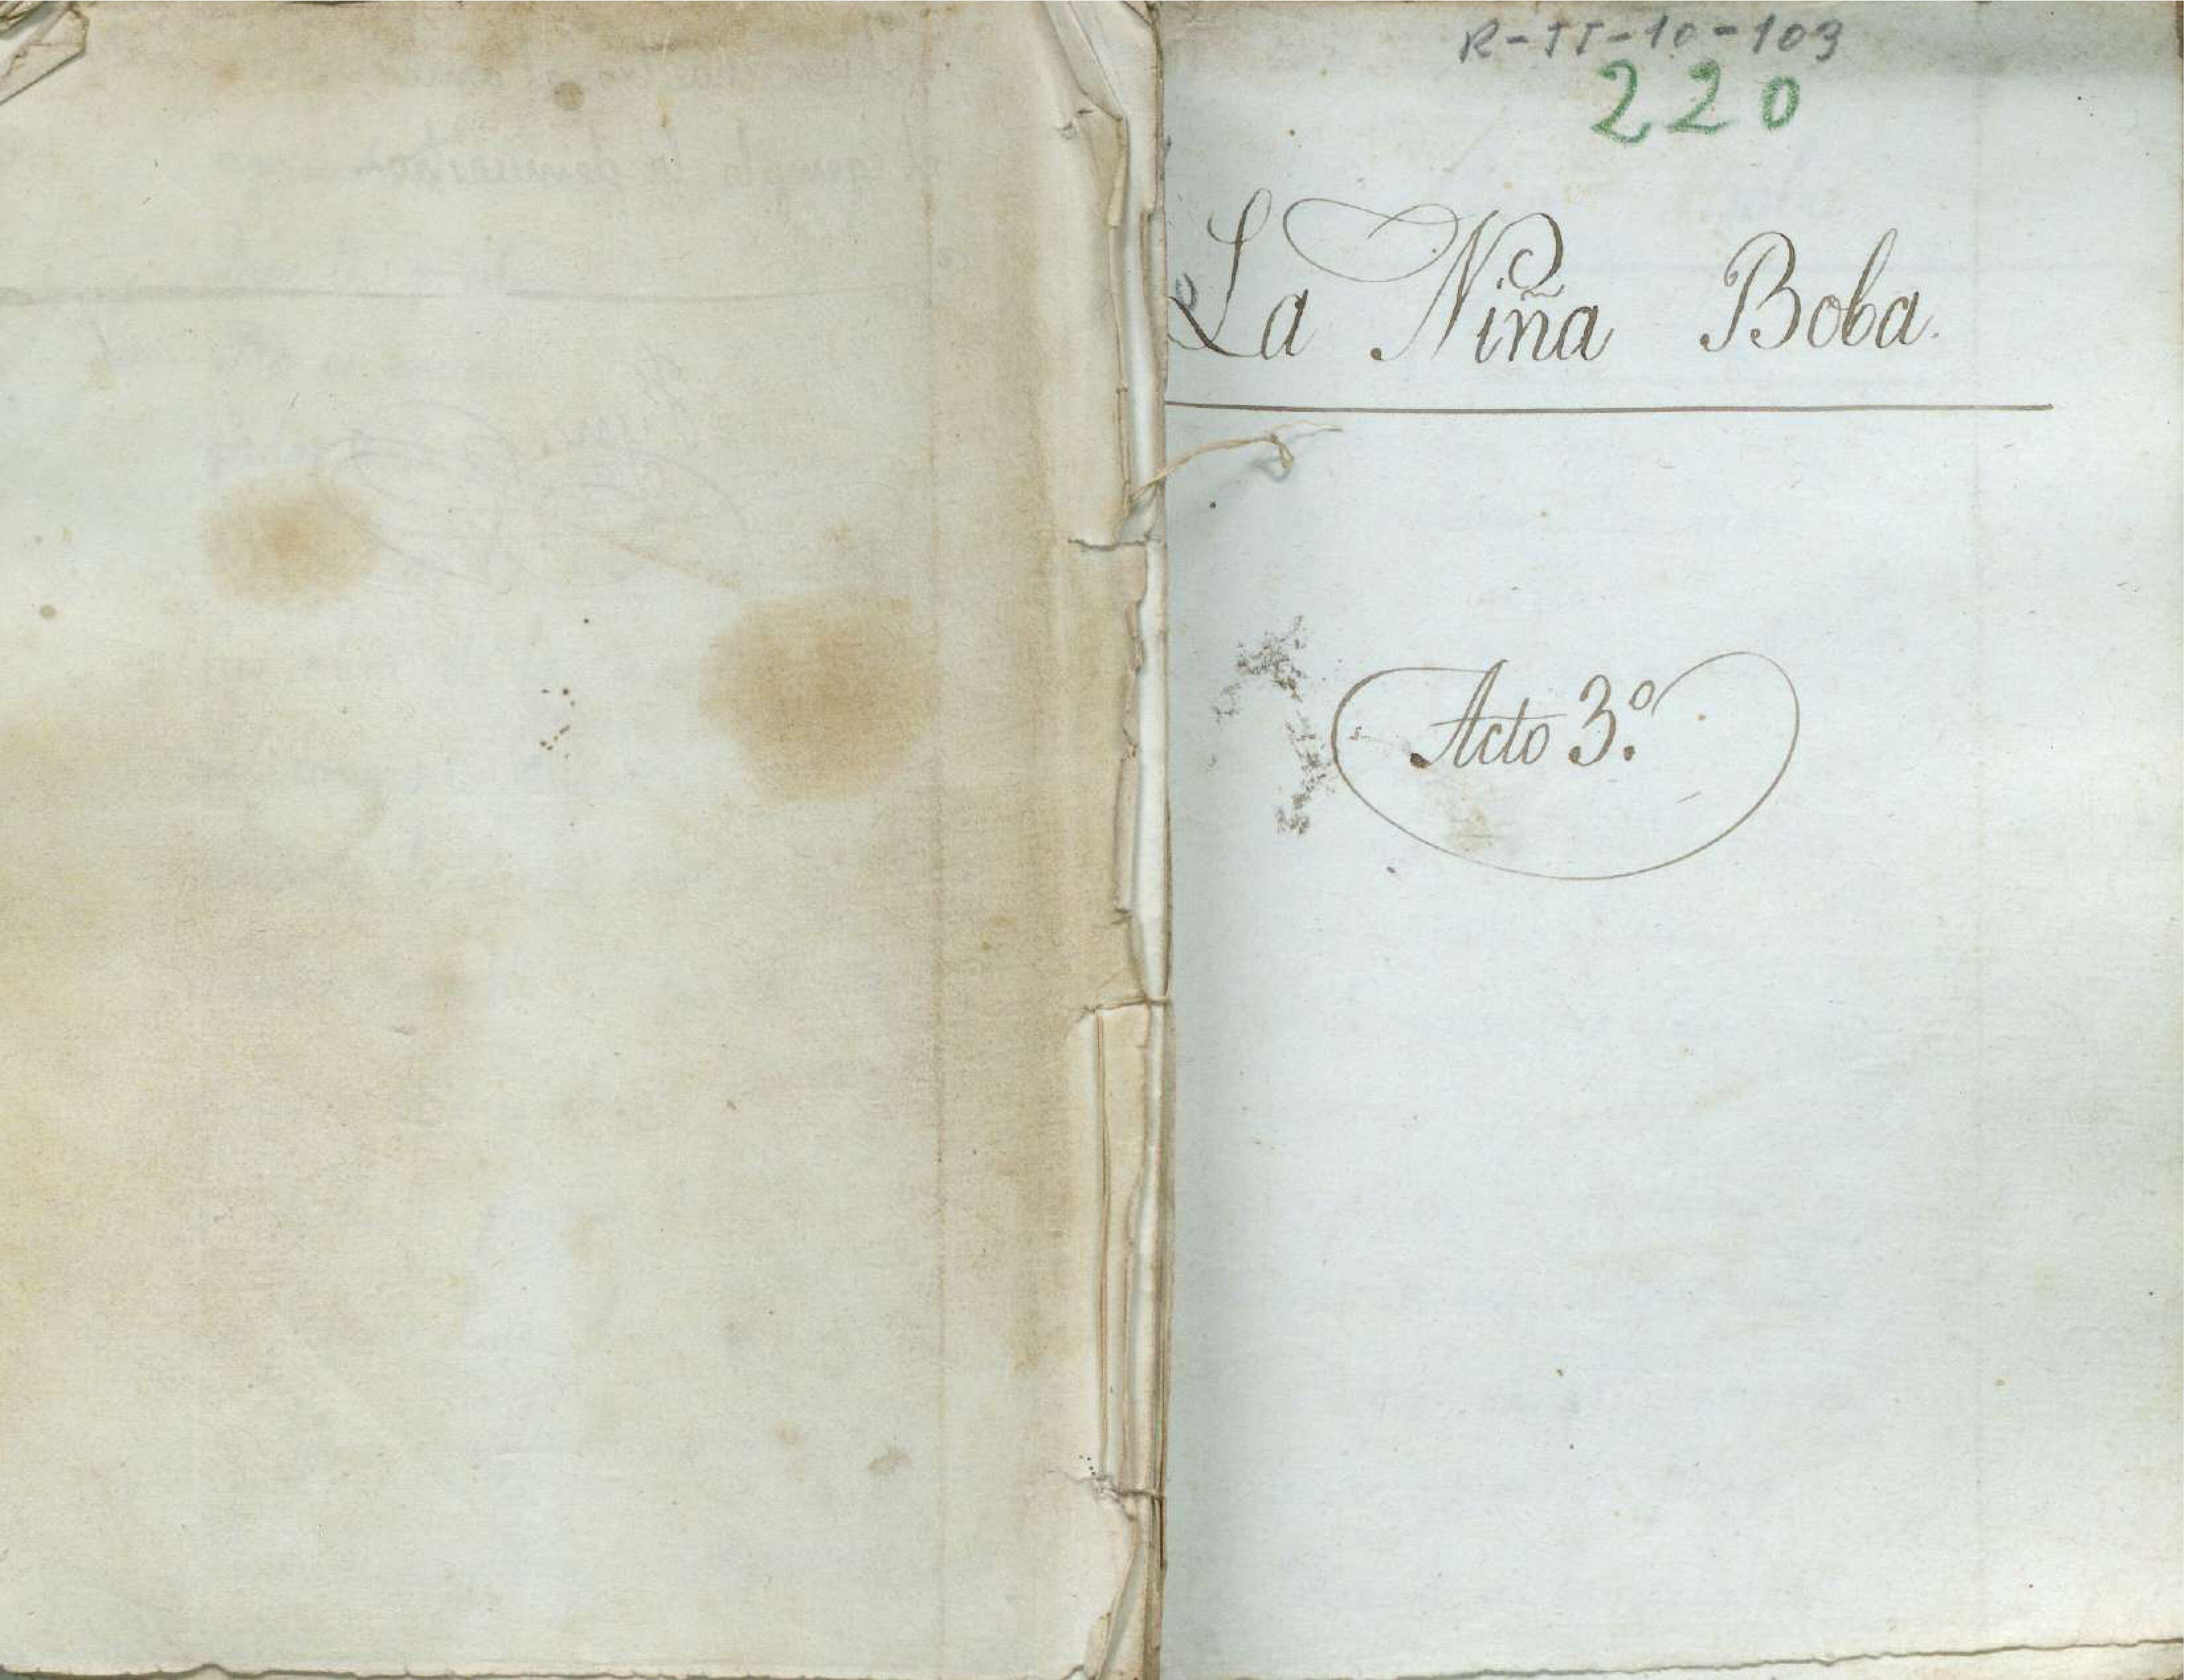 R-II-10-103
220
La Niña Boba.
Acto 3º.